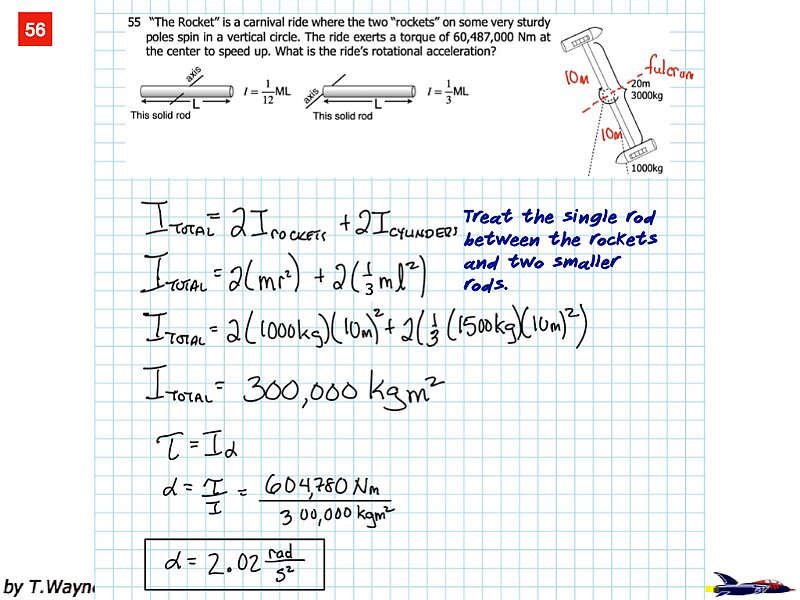 56
55 “The Rocket” is a carnival ride where the two “rockets” on some very sturdy
poles spin in a vertical circle. The ride exerts a torque of 60,487,000 Nm at
the center to speed up. What is the ride’s rotational acceleration?
axis
L
I = 1/12 ML
This solid rod
axis
L
I = 1/3 ML
This solid rod
10m
fulcrum
20m
3000kg
10m
1000kg
I TOTAL = 2 I ROCKETS + 2 I CYLINDERS
I TOTAL = 2(mr²) + 2(1/3 ml²)
I TOTAL = 2(1000kg)(10m)² + 2(1/3 (1500kg)(10m)²)
I TOTAL = 300,000 kgm²
Treat the single rod
between the rockets
and two smaller
rods.
τ = Iα
α = τ/I = 604,780 Nm / 300,000 kgm²
α = 2.02 rad/s²
by T.Wayne